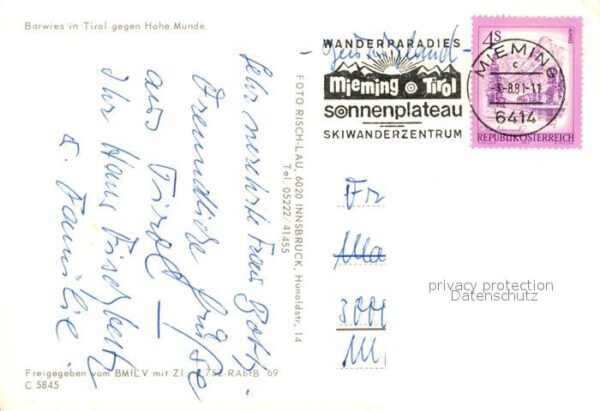 Barwies in Tirol gegen Hohe Munde
Sehr verehrte Frau
Freundliche Grüße
aus Tirol —
Ihr Hans
u. Familie.
FOTO RISCH-LAU, 6020 INNSBRUCK, Hunoldstr. 14
Tel. 05222/41455
Freigegeben vom BMfLV mit Zl. 752-RAbtB 69
C 5845
WANDERPARADIES
Mieming Tirol
sonnenplateau
SKIWANDERZENTRUM
4S
MIEMING
c
-3.-8.81-11
6414
REPUBLIK ÖSTERREICH
Fr
3000
privacy protection
Datenschutz